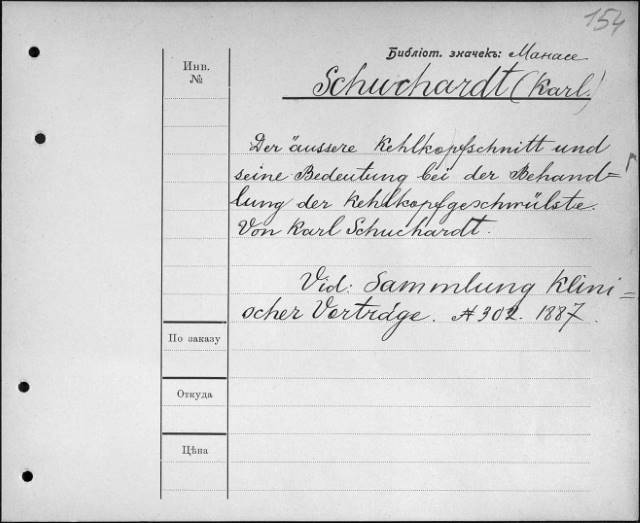 154
Библіот. значекъ: Манасе
Инв.
№
Schuchardt (Karl.)
Der äussere Kehlkopfschnitt und
seine Bedeutung bei der Behand=
lung der Kehlkopfgeschwülste.
Von Karl Schuchardt.
Vid: Sammlung Klini=
scher Vorträge. № 302. 1887.
По заказу
Откуда
Цѣна